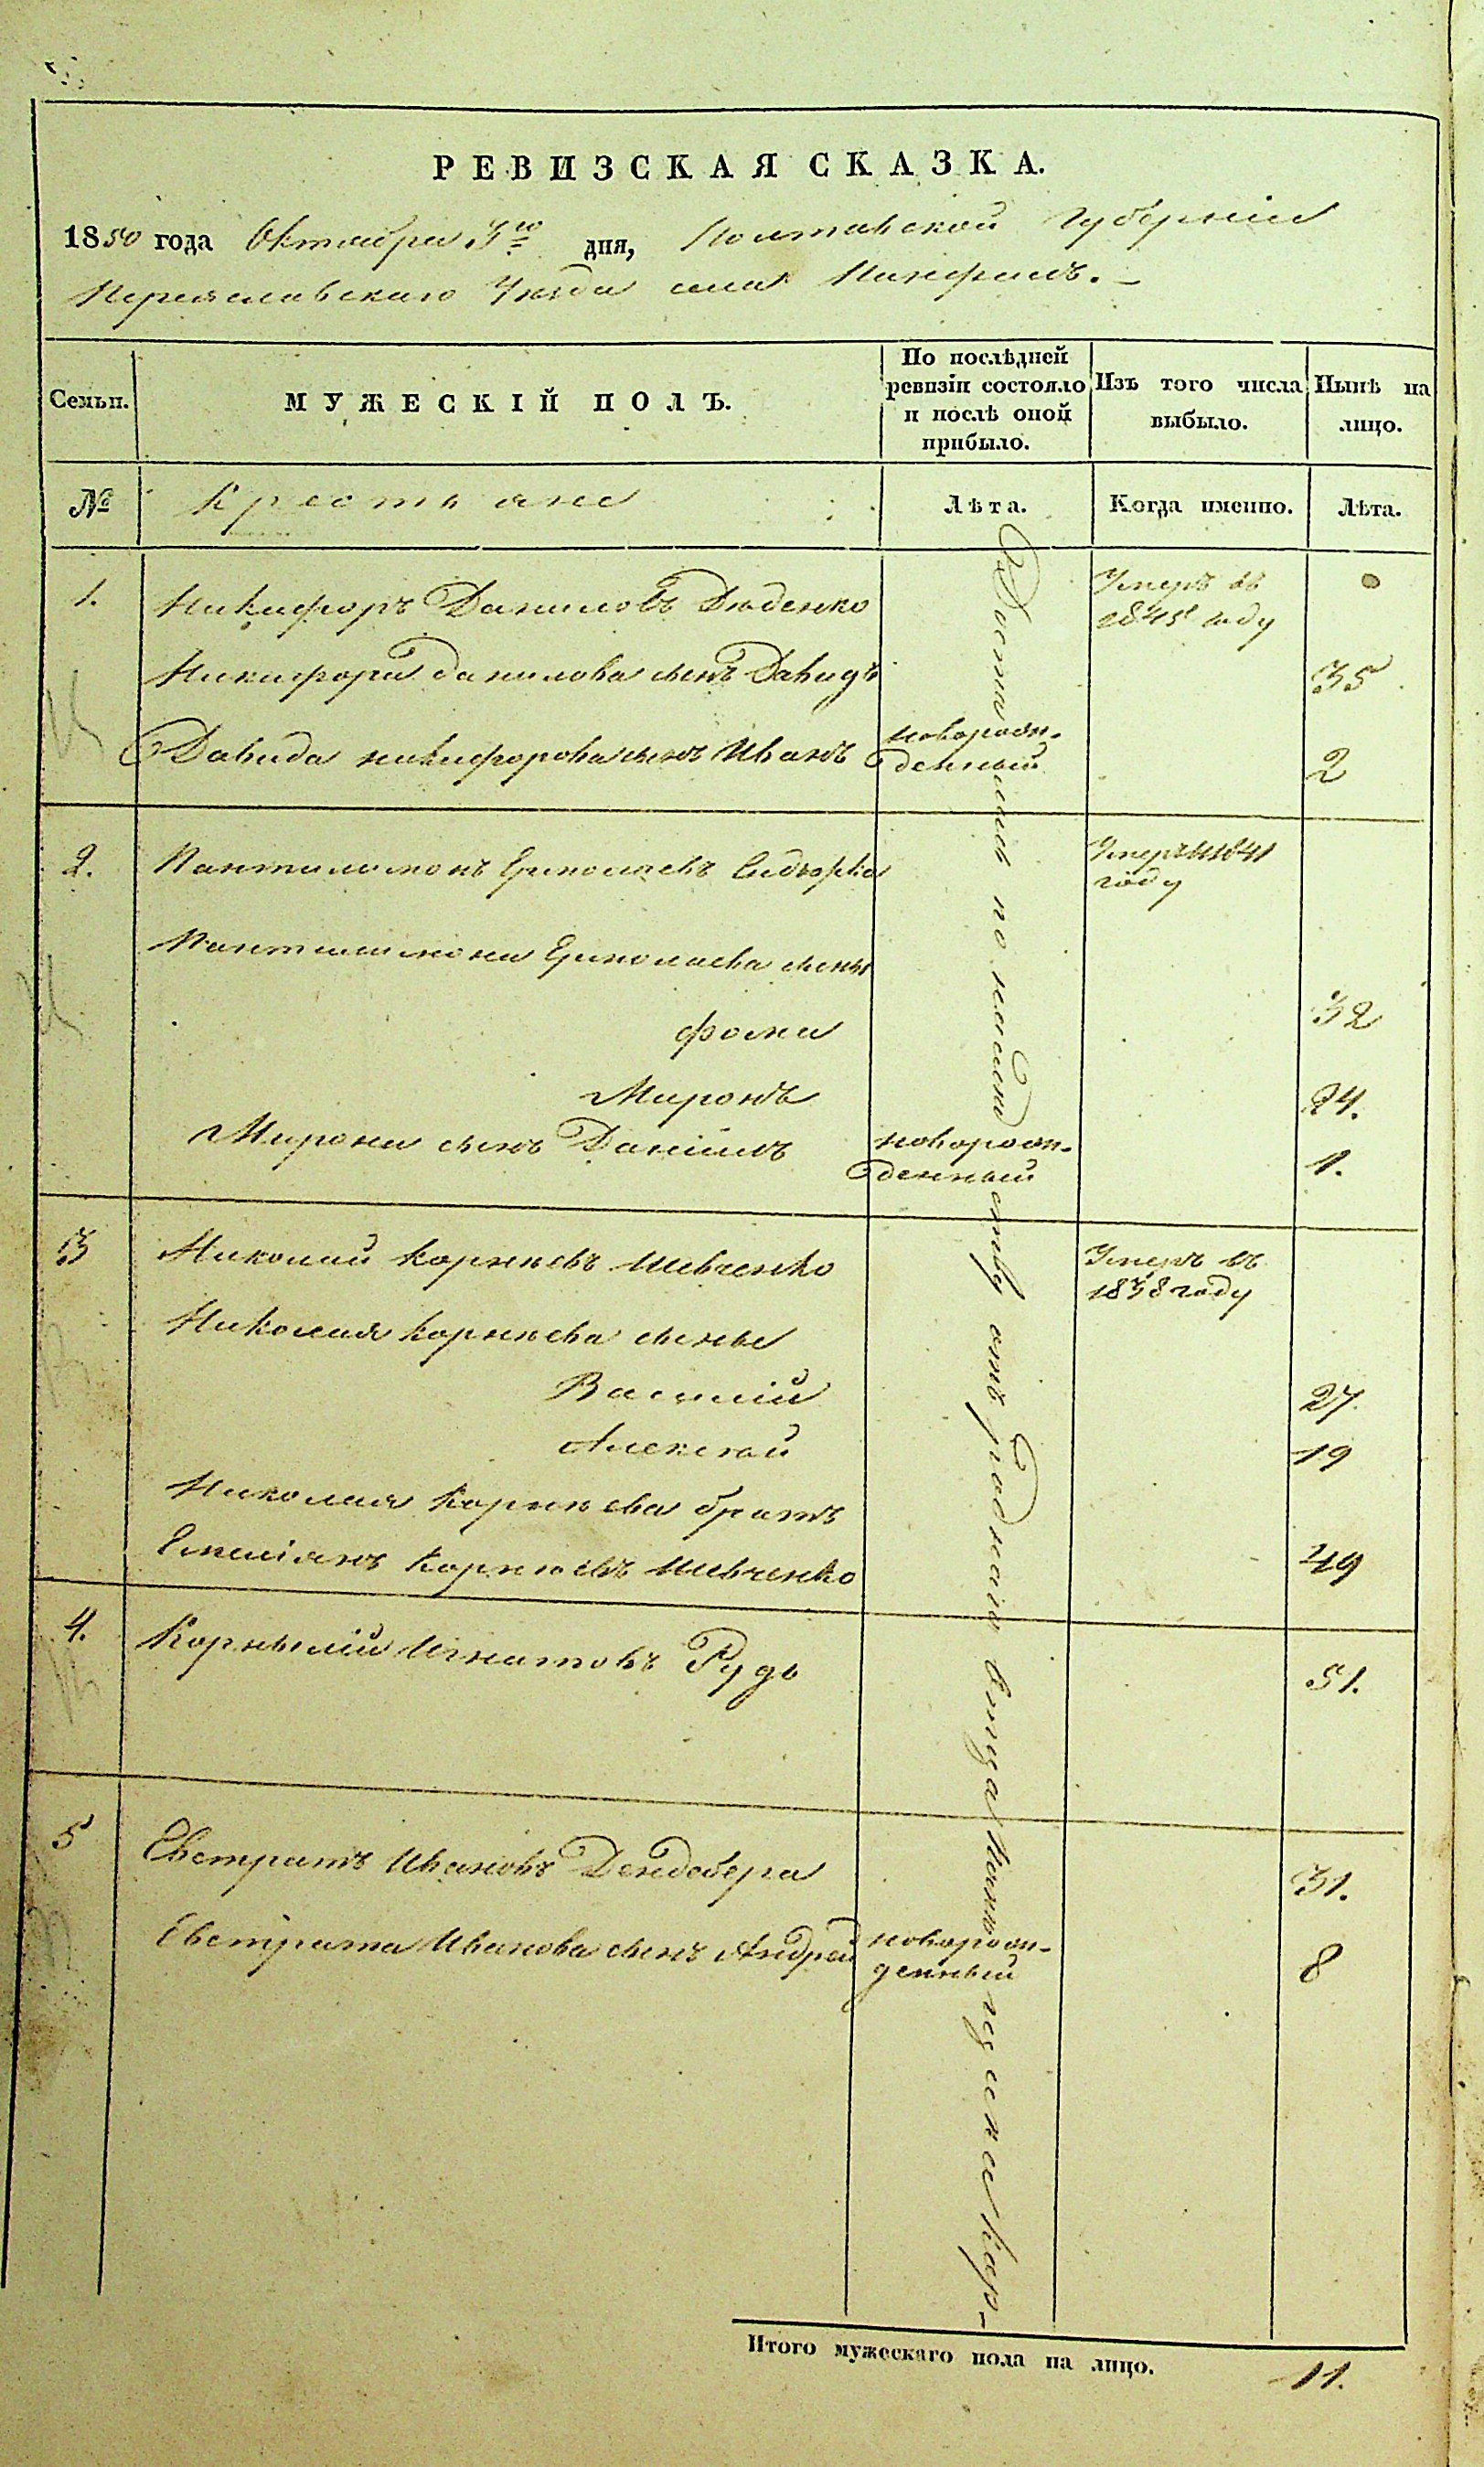 РЕВИЗСКАЯ СКАЗКА.
1850 года Октября 3го дня, Полтавской Губернии
Переяславскаго Уезда села
Семьи. МУЖЕСКІЙ ПОЛЪ. По послѣдней ревизіи состояло и послѣ оной прибыло. Изъ того числа выбыло. Нынѣ на лицо.
№ Крестьяне Лѣта. Когда именно. Лѣта.
1. Никифоръ Даниловъ Дяденко Умеръ въ 1845 году 0
Никифора Данилова сынъ Давидъ 35
Давида Никифорова сынъ Иванъ новорож-денный 2
2. Пантилимонъ Ермолаевъ Умеръ 1841 году
Пантилимона Ермолаева сыны
Фома 32
Миронъ 24.
Мирона сынъ Даніилъ новорож-денный 1.
3 Николай Корнеевъ Шевченко Умеръ въ 1838 году
Николая Корнеева сыны
Василій 27
Алексей 19
Николая Корнеева братъ
Емеліянъ Корнеевъ Шевченко 49
4. Корнилій Игнатовъ Рудь 51.
5 Евстратъ Ивановъ Дендебера 31.
Евстрата Иванова сынъ Андрей новорож-денный 8
Достались по наследству отъ Родного Отца
Итого мужескаго пола на лицо. 11.